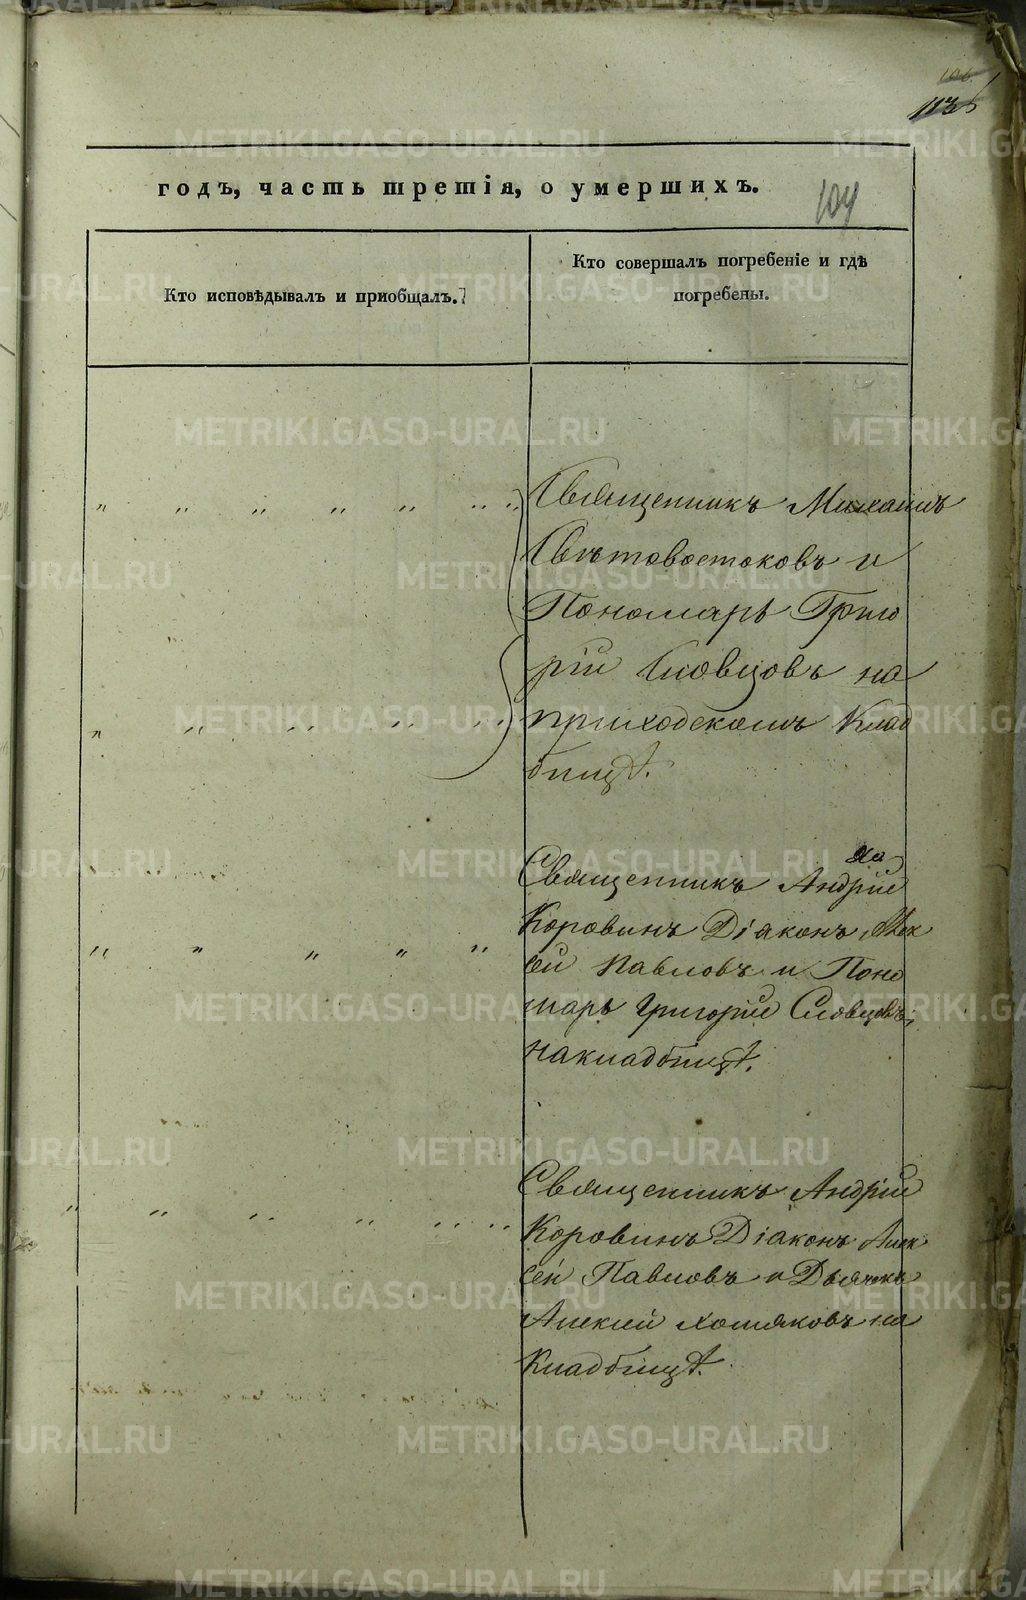 113
годъ, часть третія, о умершихъ.
104
Кто исповѣдывалъ и пріобщалъ.
Кто совершалъ погребеніе и гдѣ
погребены.
Священникъ Михаилъ
Свѣтовостоковъ и
Пономарь Григо
рій Словцовъ на
приходскомъ Клад
бищѣ.
Священникъ Андрій
Коровинъ Діаконъ Алек
сѣй Павловъ и Поно
марь Григорій Словцовъ,
на кладбищѣ.
Священникъ Андрій
Коровинъ Діаконъ Алек
сѣй Павловъ и Дьячекъ
Алексѣй Хомяковъ на
Кладбищѣ.
METRIKI.GASO-URAL.RU